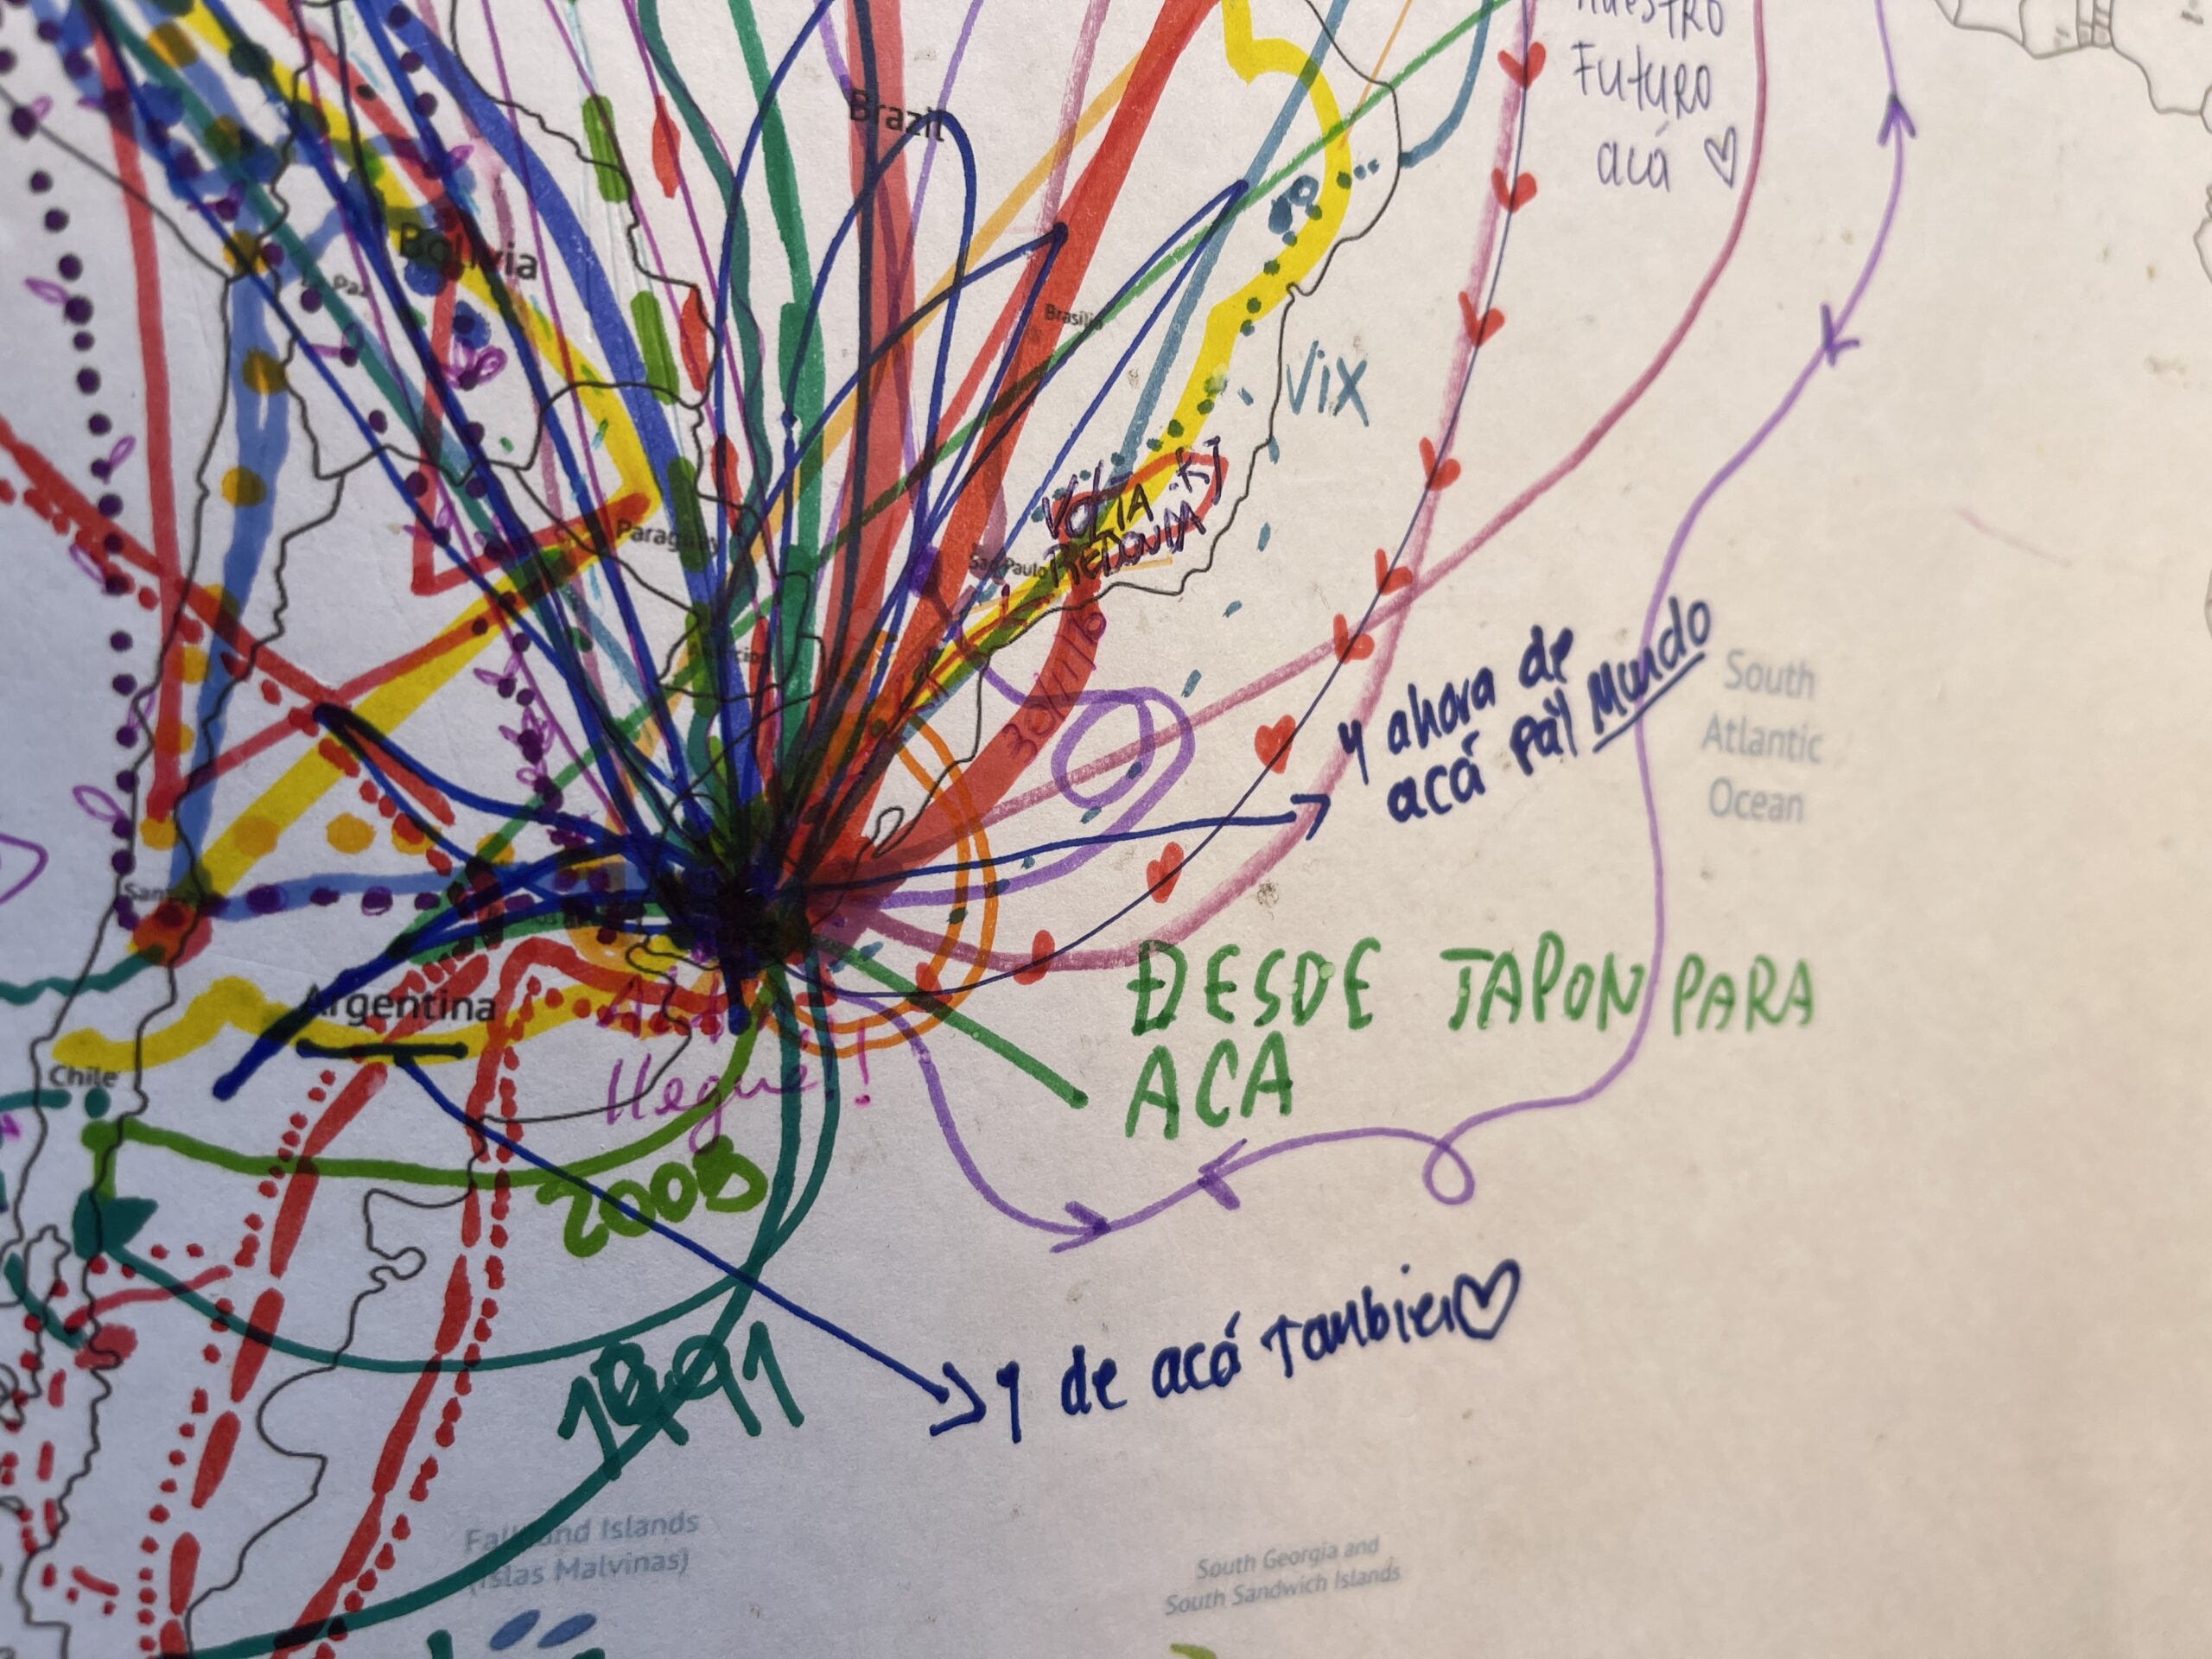 NUESTRO
FUTURO
acá ♡
Brazil
Bolivia
Brasília
VIX
VOLTA RJ
REDONDA
Paraguay
São Paulo
30/VI/16
y ahora de
acá pal Mundo
South
Atlantic
Ocean
DESDE JAPON PARA
ACA
Argentina
llegué!
Chile
2008
1991
y de acá También♡
Falkland Islands
(Islas Malvinas)
South Georgia and
South Sandwich Islands